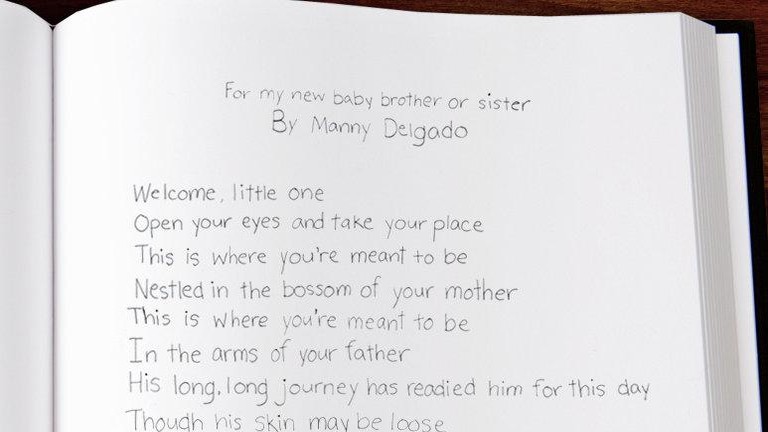 For my new baby brother or sister
By Manny Delgado
Welcome, little one
Open your eyes and take your place
This is where you're meant to be
Nestled in the bossom of your mother
This is where you're meant to be
In the arms of your father
His long, long journey has readied him for this day
Though his skin may be loose